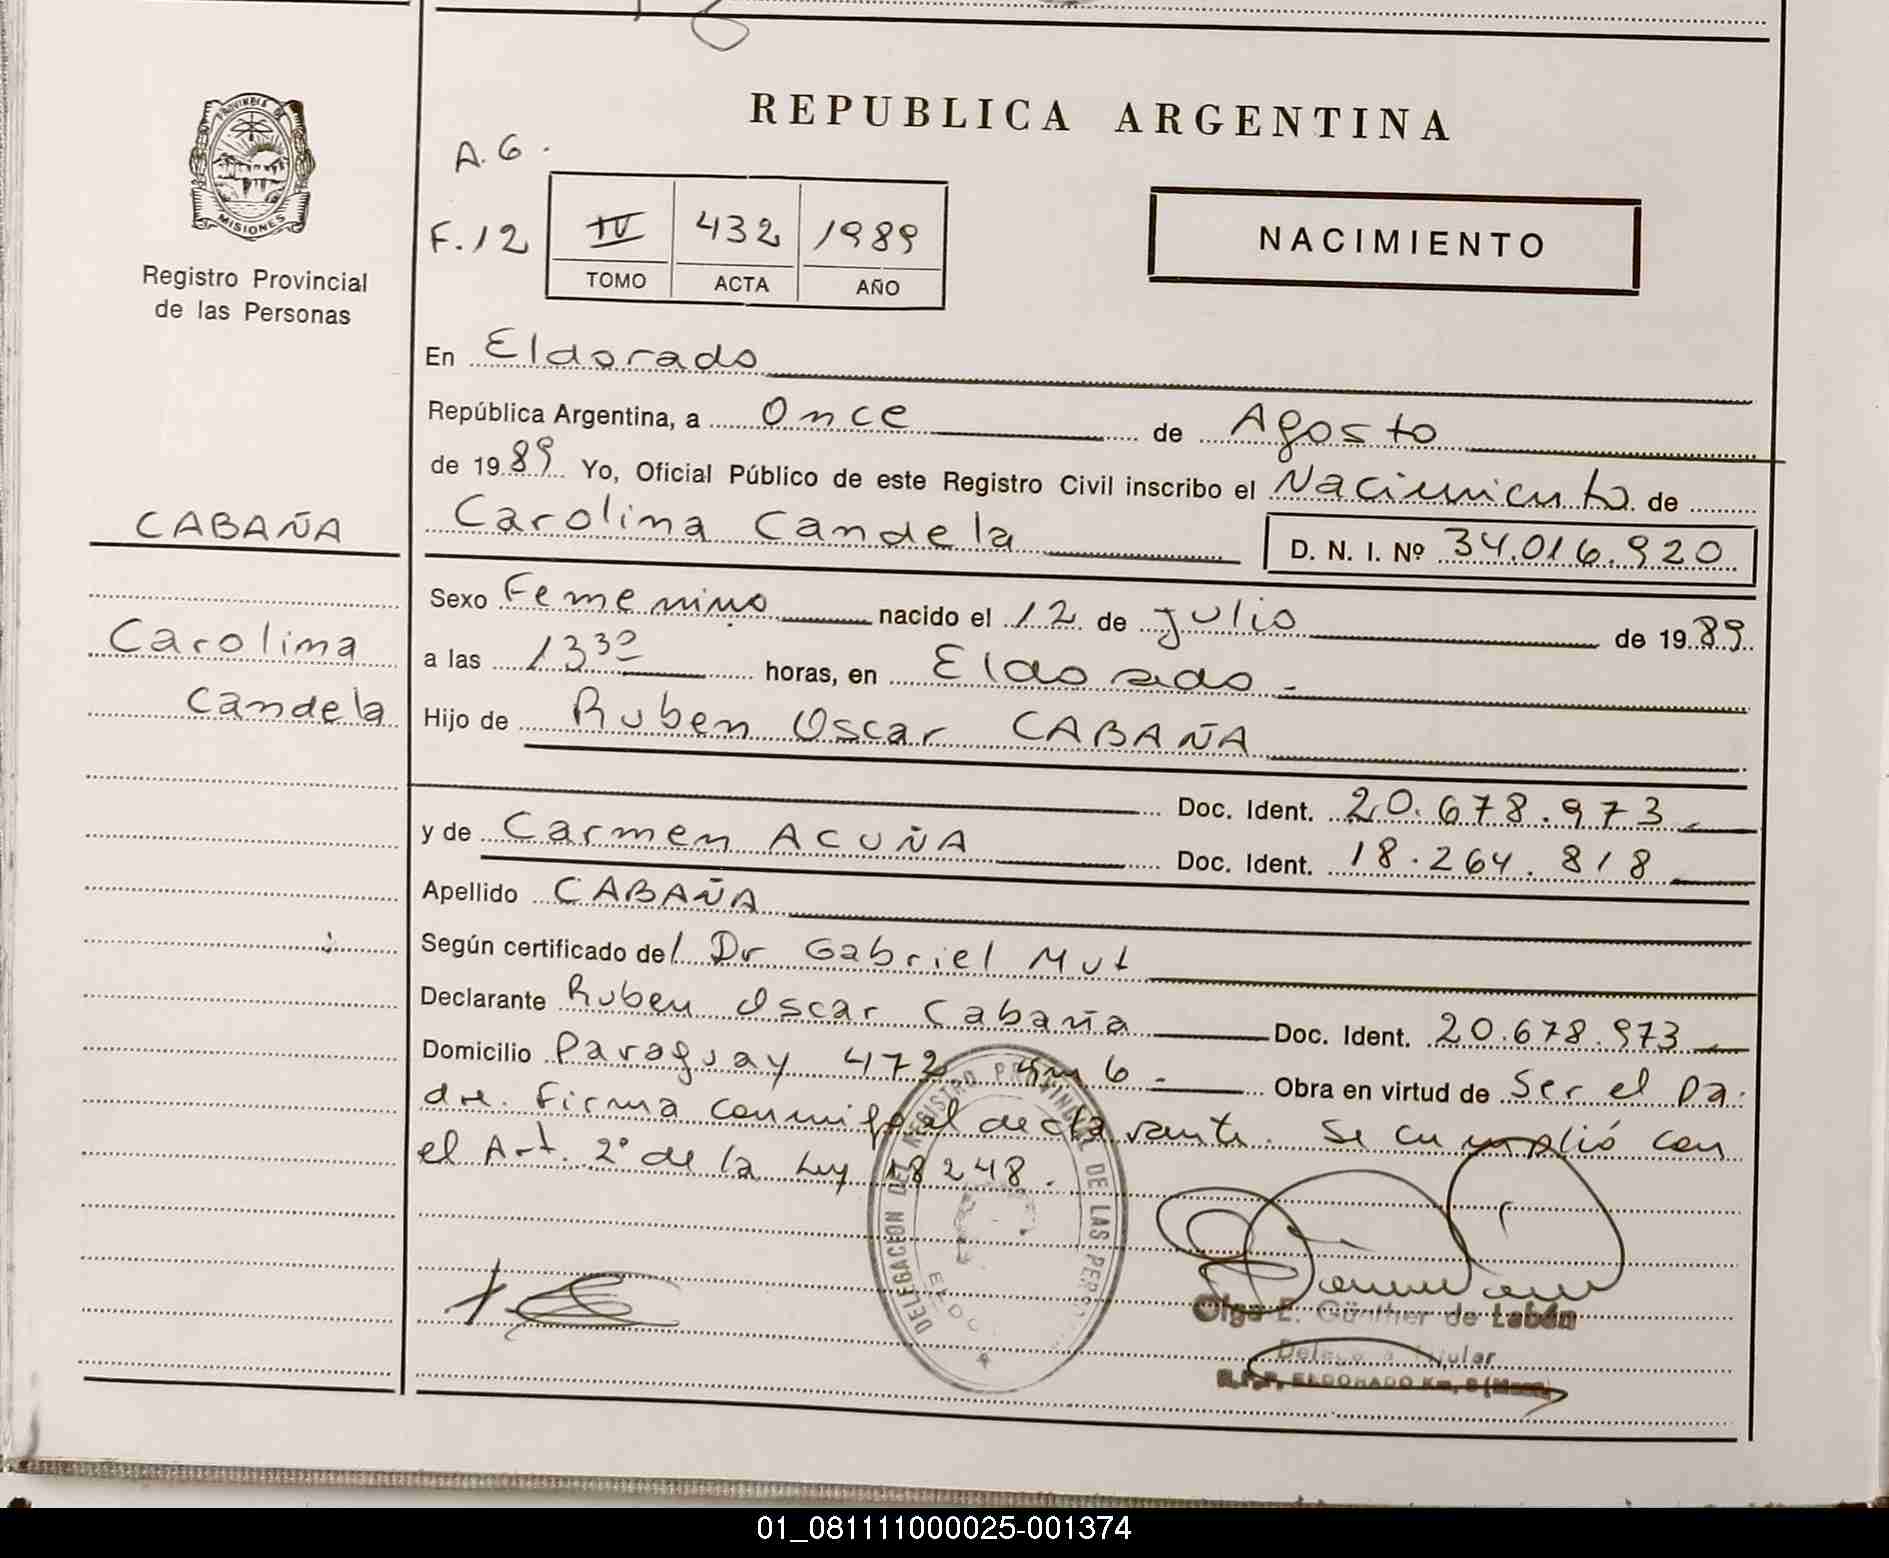 REPUBLICA ARGENTINA
PROVINCIA DE MISIONES
Registro Provincial
de las Personas
A. 6.
F. 12
IV 432 1989
TOMO ACTA AÑO
NACIMIENTO
En Eldorado
República Argentina, a Once de Agosto
de 1989 Yo, Oficial Público de este Registro Civil inscribo el Nacimiento de
Carolina Candela D. N. I. Nº 34.016.920
CABAÑA
Carolina
Candela
Sexo Femenino nacido el 12 de julio de 1989
a las 13 30 horas, en Eldorado -
Hijo de Ruben Oscar CABAÑA
Doc. Ident. 20.678.973
y de Carmen ACUÑA Doc. Ident. 18.264.818
Apellido CABAÑA
Según certificado del Dr Gabriel Mut
Declarante Ruben Oscar Cabaña Doc. Ident. 20.678.973
Domicilio Paraguay 472 km 6 - Obra en virtud de Ser el pa-
dre. Firma conmigo el declarante. Se cumplió con
el Art. 2° de la Ley 18248.
DELEGACION DEL REGISTRO PROVINCIAL DE LAS
Olga E. Günther de Labán
Titular
R.P.P. ELDORADO Km.
01_081111000025-001374